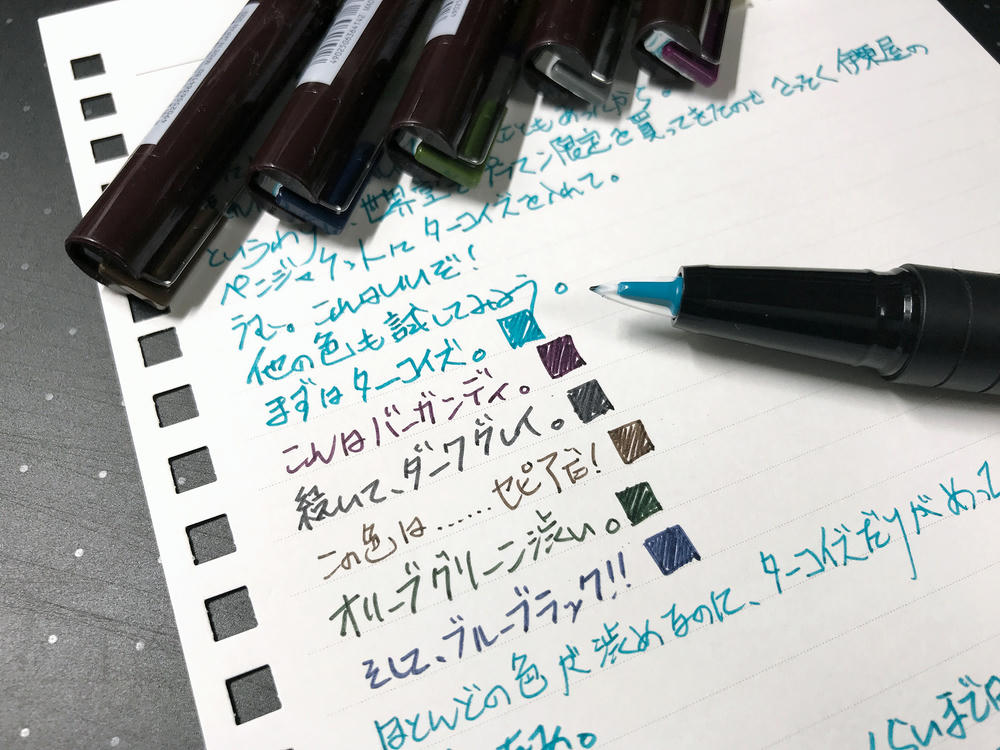 4902506364142
こともあったから。
というわけで、世界堂でプラマン限定を買ってきたのでさっそく伊東屋の
ペンジャケットにターコイズを入れて。
うむ。これはいいぞ!
他の色も試してみよう。
まずはターコイズ。
こんはバーガンディ。
続いて、ダークグレイ。
この色は……セピアだ!
オリーブグリーン渋い。
そして、ブルーブラック!!
ほとんどの色が渋めなのに、ターコイズだけがめって
くいまで